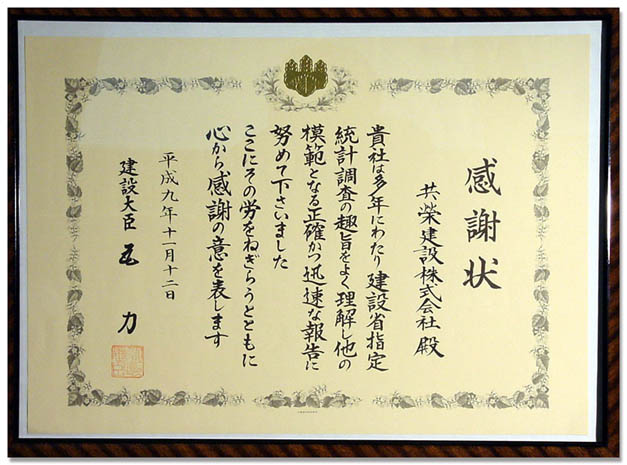 感謝状
共榮建設株式会社 殿
貴社は多年にわたり建設省指定
統計調査の趣旨をよく理解し他の
模範となる正確かつ迅速な報告に
努めて下さいました
ここにその労をねぎらうとともに
心から感謝の意を表します
平成九年十一月十二日
建設大臣 瓦 力